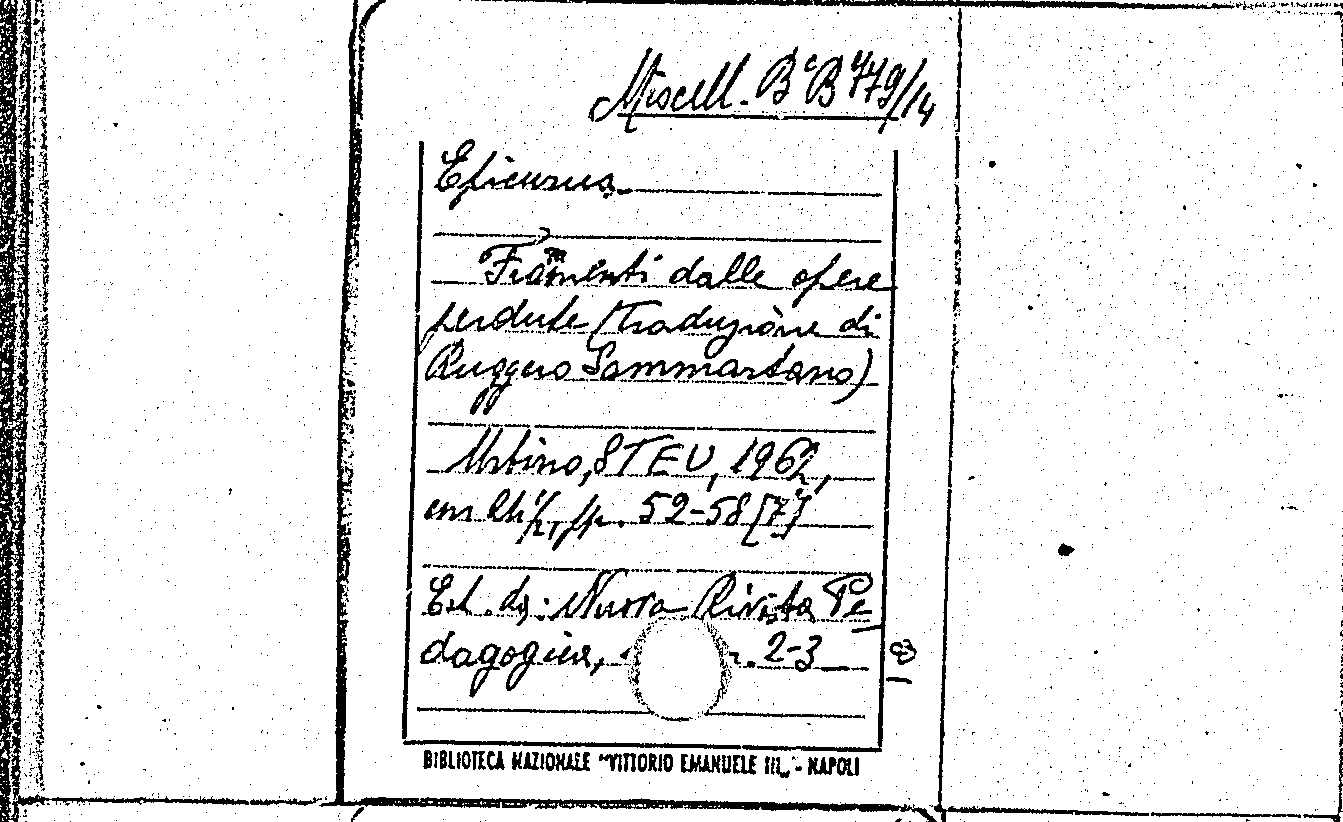 Miscell. B B 779/14
Epicurus.
Frammenti dalle opere
perdute (traduzione di
Ruggero Sammartano)
Urbino, STEU, 1962,
pp. 52-58 [7]
Est. da: Nuova Rivista Pe
dagogica, 2-3
8
BIBLIOTECA NAZIONALE "VITTORIO EMANUELE III„ - NAPOLI